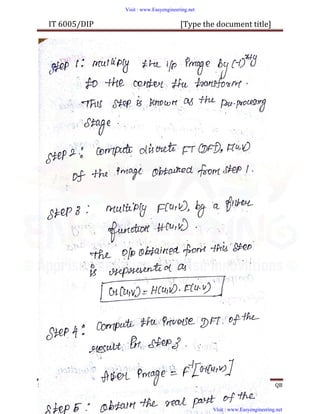 Visit : www.Easyengineering.net
IT 6005/DIP [Type the document title]
Step 1 : multiply the i/p Image by (-1)^x+y
to the center the transform.
This step is known as the pre-processing
stage.
Step 2 : Compute discrete FT (DFT), F(u,v)
of the image obtained from step 1.
Step 3 : multiply F(u,v), by a filter
function H(u,v)
the o/p obtained from this step
is represented as
G(u,v) = H(u,v) . F(u,v)
Step 4 : Compute the Inverse DFT. of the
result in step 3.
filter Image = F⁻¹[G(u,v)]
QB
Step 5 : obtain the real part of the
Visit : www.Easyengineering.net